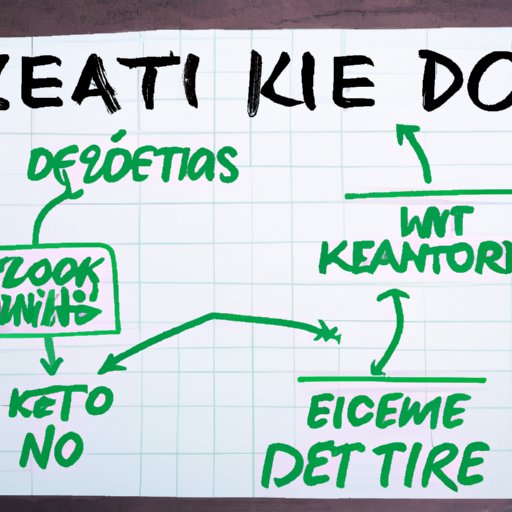 ZEATI KIE DO
DEƧÓETIAS
WNT
KEANTOR
ZOOK
KETO
NO
EICEME
DET TIRE